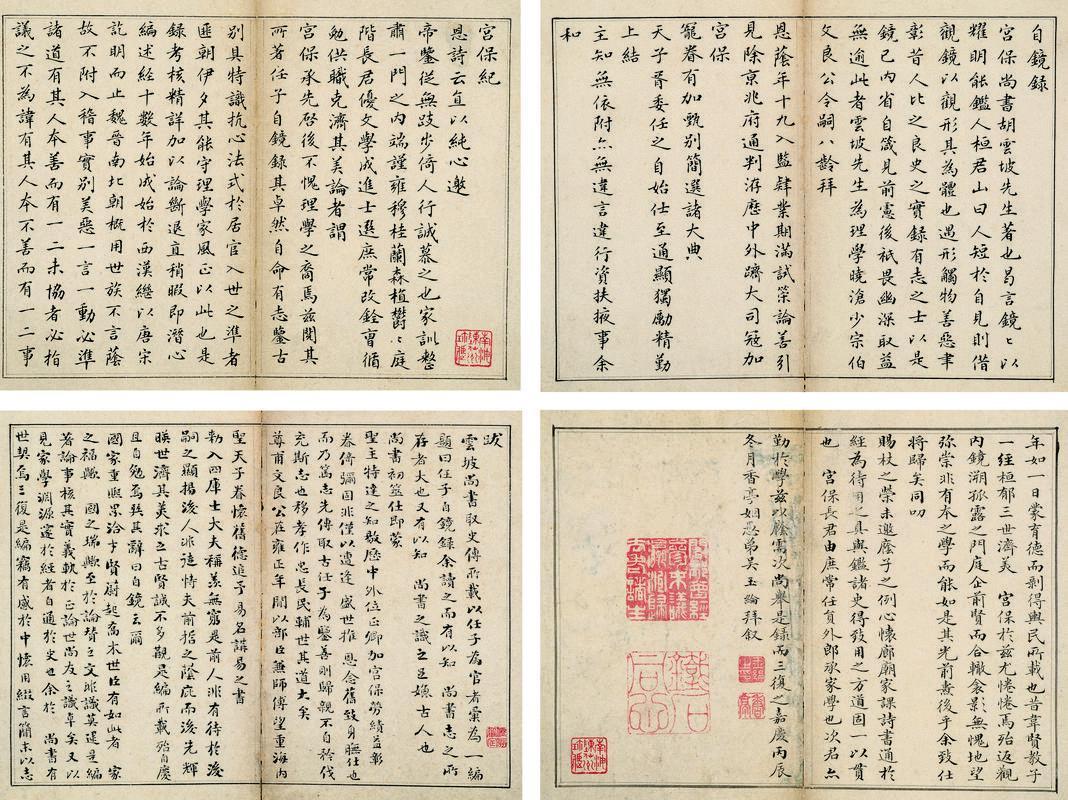 自鏡錄
宮保尚書胡雲坡先生著也曷言鏡〻以
耀明能鑑人桓君山曰人短於自見則借
觀鏡以觀形其為體也遇形觸物善惡畢
彰昔人比之良史之實錄有志之士以是
鏡己內省自箴見前憲後祇畏幽深取益
無逾此者雲坡先生為理學曉滄少宗伯
文良公令嗣八齡拜
恩蔭年十九入監肄業期滿試策論善引
見除京兆府通判洊歷中外躋大司寇加
宮保
寵眷有加甄別簡選諸大典
天子胥委任之自始仕至通顯獨勵精勤
上結
主知無依附亦無違言違行資扶掖事余
和
宮保紀
恩詩云直以純心邀
帝鑒從無跂步倚人行誠慕之也家訓整
肅一門之內端謹雍穆桂蘭森植鬱〻庭
階長君優文學成進士選庶常改銓曹循
勉供職克濟其美論者謂
宮保承先啓後不愧理學之裔焉茲閱其
所著任子自鏡錄其卓然自命有志鑒古
別具特識抗心法式於居官入世之準者
匪朝伊夕其能守理學家風正以此也是
錄考核精詳加以論斷退直稍暇即潛心
編述經十數年始成始於西漢繼以唐宋
訖明而止魏晉南北朝概用世族不言蔭
故不附入稽事實別美惡一言一動必準
諸道有其人本善而有一二未協者必指
議之不為諱有其人本不善而有一二事
年如一日蒙育德而剩得與民所載也昔韋賢教子
一經桓郁三世濟美 宮保於茲尤惓惓焉殆返觀
內鏡溯孤露之門庭企前賢而合轍衾影無愧地望
彌崇非有本之學而能如是其光前燾後乎余致仕
將歸矣同叨
賜杖之榮未邀廕子之例心懷廊廟家課詩書通於
經為待用之具與鑑諸史得致用之方道固一以貫
也 宮保長君由庶常任員外郎承家學也次君亦
勤於學茲以廕需次尚舉是錄而三復之嘉慶丙辰
冬月香亭姻愚弟吳玉綸拜叙
跋
雲坡尚書取史傳所載以任子為官者彙為一編
顯曰任子自鏡錄余讀之而有以知 尚書志之所
存者大也又有以知 尚書之識之足媲古人也
尚書初筮仕即蒙
聖主特達之知敭歷中外位正卿加宮保勞績益彰
眷倚彌固非僅以遭逢 盛世推 恩念舊致身膴仕也
而乃篤志先傳取古任子為鑒善則歸親不自矜伐
充斯志也移孝作忠長民輔世其道大矣
尊甫文良公在雍正年間以部臣無師傅望重海內
聖天子眷懷舊德追予易名講易之書
勅入四庫士大夫稱羨無窮是前人非有待於後
嗣之顯揚後人非徒恃夫前哲之蔭庇而後先輝
暎世濟其美求之古賢誠不多覯是編所載殆自慶
且自勉焉其辭曰自鏡云爾
國家重熙累洽才賢蔚起喬木世臣有如此者 家
之福歟 國之瑞歟至於論贊之文非識英遲是編
著論事核其實義軌於正論世尚友之識卓矣又以
見家學淵源邃於經者自通於史也余於 尚書有
世契焉三復是編竊有感於中懷用綴言簡末以志